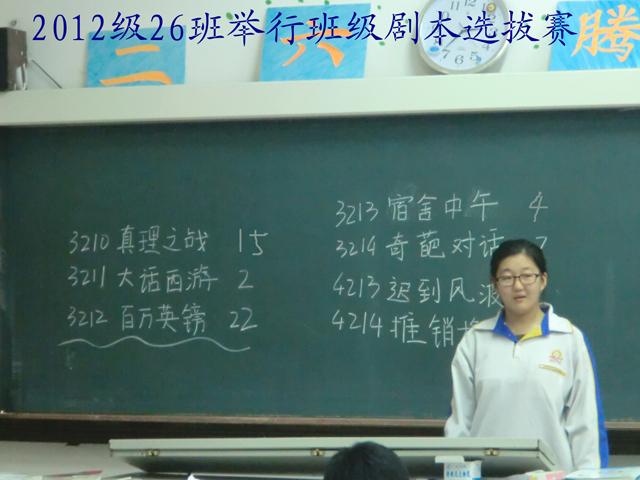 2012级26班举行班级剧本选拔赛
二 六 腾
3210 真理之战 15
3211 大话西游 2
3212 百万英镑 22
3213 宿舍中午 4
3214 奇葩对话
4213 迟到风波
4214 推销